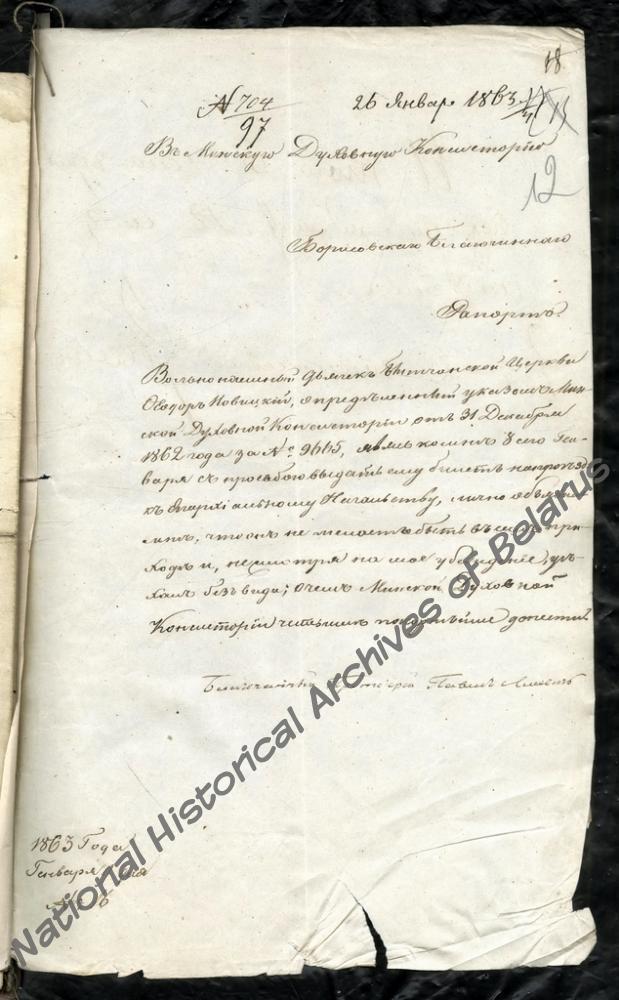 18
№ 704 / 97
26 Январ 1863
12
Въ Минскую Духовную Консисторію
Борисовскаго Благочиннаго
Рапортъ.
Вольнонаемный дьячекъ Церкви
Ѳеодоръ Новицкій, опредѣленный указомъ Мин-
ской Духовной Консисторіи отъ 31 Декабря
1862 года за № 9665, явясь ко мнѣ 8 сего Ген-
варя съ просьбою выдать ему билетъ на проѣздъ
къ Епархіальному Начальству, лично объявилъ
мнѣ, что онъ не желаетъ быть въ семъ при-
ходѣ и, несмотря на мое убежденіе, уѣ-
халъ безъ вида; о чемъ Минской Духовной
Консисторіи честь имѣю донести.
Благочинный Павелъ
1863 Года
Генваря
№
National Historical Archives of Belarus